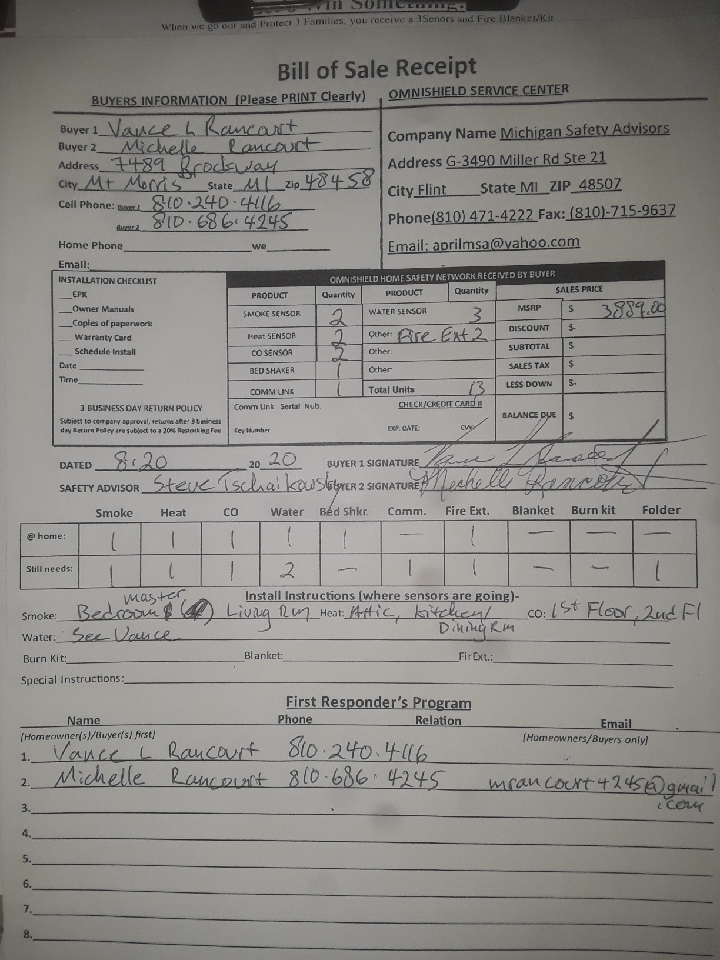 Win Something.
When we go out and Protect 3 Families, you receive a 3Senors and Fire Blanket/Kit
Bill of Sale Receipt
BUYERS INFORMATION (Please PRINT Clearly)
Buyer 1 Vance L Rancourt
Buyer 2 Michelle Rancourt
Address 7489 Brocksway
City Mt Morris State MI Zip 48458
Cell Phone: Buyer 1 810.240.4116
Buyer 2 810.686.4245
Home Phone we
Email:
OMNISHIELD SERVICE CENTER
Company Name Michigan Safety Advisors
Address G-3490 Miller Rd Ste 21
City Flint State MI ZIP 48507
Phone(810) 471-4222 Fax: (810)-715-9637
Email: aprilmsa@yahoo.com
INSTALLATION CHECKLIST
EPK
Owner Manuals
Copies of paperwork
Warranty Card
Schedule Install
Date
Time
3 BUSINESS DAY RETURN POLICY
Subject to company approval, returns after 3 business
day Return Policy are subject to a 20% Restocking Fee
OMNISHIELD HOME SAFETY NETWORK RECEIVED BY BUYER
PRODUCT Quantity PRODUCT Quantity SALES PRICE
SMOKE SENSOR 2 WATER SENSOR 3 MSRP $ 3889.00
Heat SENSOR 2 Other: Fire Ext 2 DISCOUNT $-
CO SENSOR 2 Other: SUBTOTAL $
BED SHAKER 1 Other SALES TAX $
COMM LINK 1 Total Units 13 LESS DOWN $-
Comm Link Serial Nub. CHECK/CREDIT CARD # BALANCE DUE $
Key Number EXP. DATE CVV
DATED 8.20 20 20 BUYER 1 SIGNATURE Vance L Rancourt
SAFETY ADVISOR Steve Tschaikowsky BUYER 2 SIGNATURE Michelle Rancourt
Smoke Heat CO Water Bed Shkr. Comm. Fire Ext. Blanket Burn kit Folder
@ home: 1 1 1 1 1 — 1 — — —
Still needs: 1 1 1 2 — 1 1 — — 1
Install Instructions (where sensors are going)-
master
Smoke: Bedroom Living Rm Heat: Attic, kitchen/ CO: 1st Floor, 2nd Fl
Dining Rm
Water: See Vance
Burn Kit: Blanket: Fir Ext.:
Special Instructions:
First Responder's Program
Name Phone Relation Email
(Homeowner(s)/Buyer(s) first) (Homeowners/Buyers only)
1. Vance L Rancourt 810.240.4116
2. Michelle Rancourt 810.686.4245 mrancourt4245@gmail
.com
3.
4.
5.
6.
7.
8.